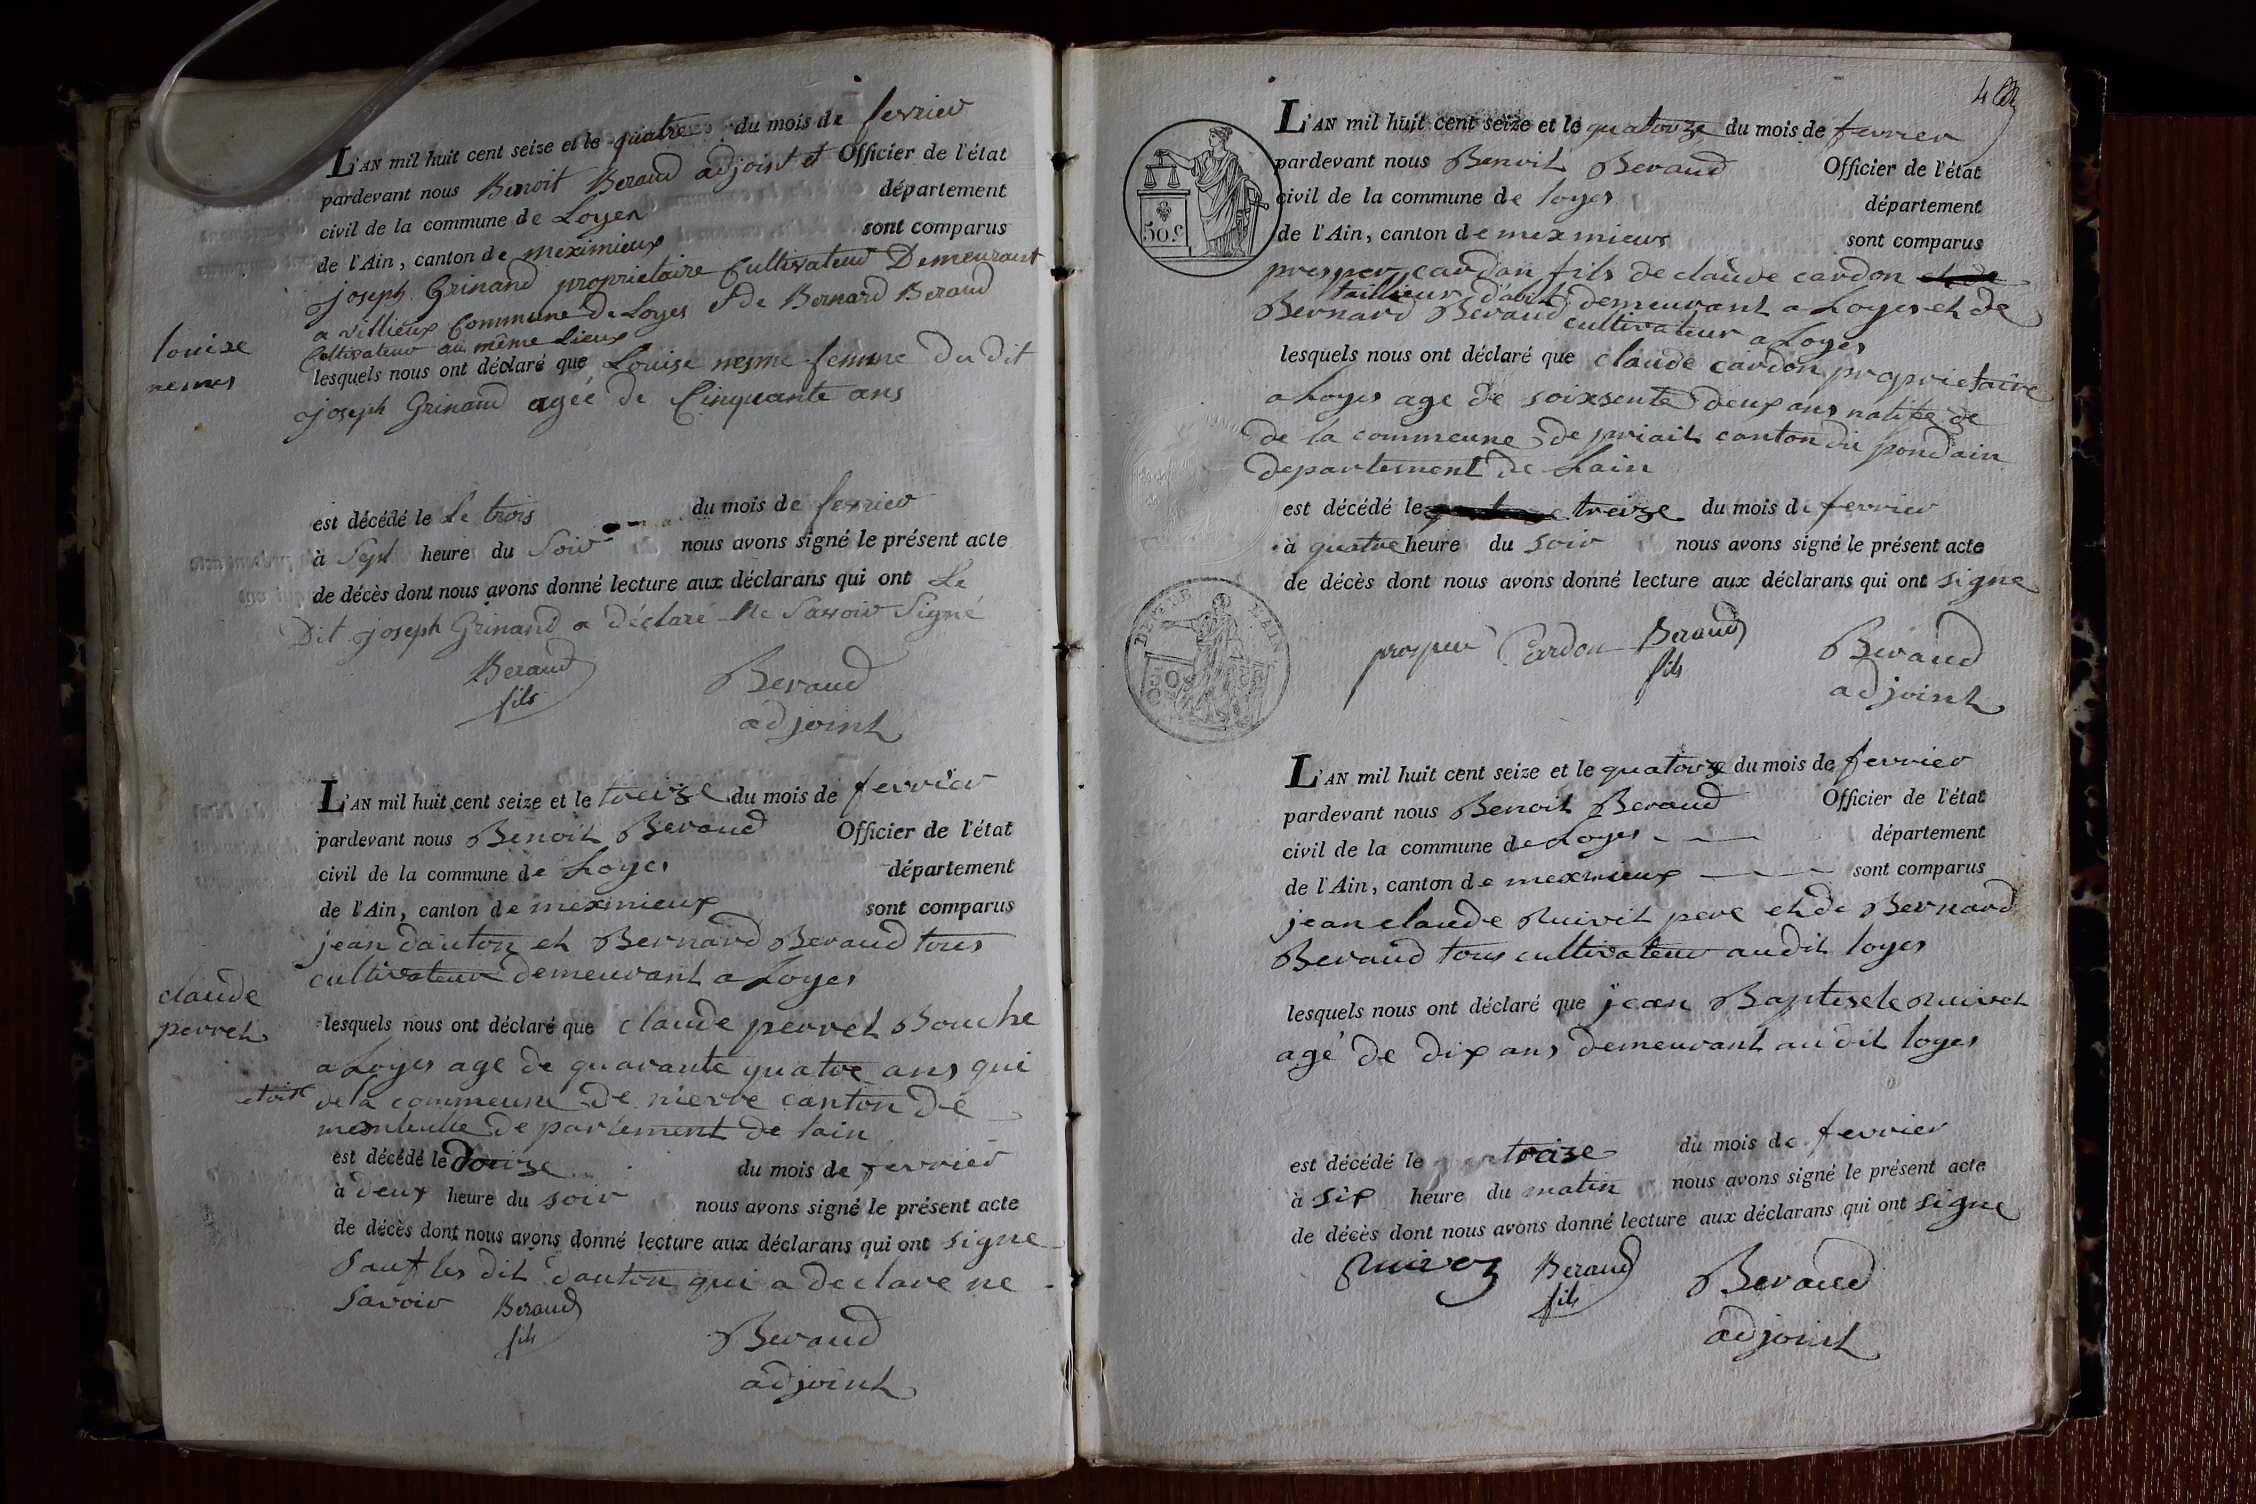 L'AN mil huit cent seize et le quatre du mois de fevrier
pardevant nous Benoit Beraud adjoint et Officier de l'état
civil de la commune de Loyes département
de l'Ain, canton de meximieux sont comparus
joseph Grinand proprietaire Cultivateur Demeurant
a villieux Commune De Loyes et de Bernard Beraud
Cultivateur au même Lieux
louise
nemes
lesquels nous ont déclaré que Louise nesme femme Du dit
joseph Grinand ageé de Cinquante ans
est décédé le Le trois du mois de fevrier
à Sept heure du Soir nous avons signé le présent acte
de décès dont nous avons donné lecture aux déclarans qui ont Le
Dit joseph Grinand a déclaré Ne Savoir Signé
Beraud
fils
Beraud
adjoint
L'AN mil huit cent seize et le treize du mois de fevrier
pardevant nous Benoit Beraud Officier de l'état
civil de la commune de Loyes département
de l'Ain, canton de meximieux sont comparus
jean dauton et Bernard Beraud tous
cultivateur demeurant a Loyes
claude
perret
lesquels nous ont déclaré que claude perret Bouche
a Loyes age de quarante quatre ans qui
etoit de la commeune de nievre canton de
monluelle departement de lain
est décédé le douze du mois de fevrier
à deux heure du soir nous avons signé le présent acte
de décès dont nous avons donné lecture aux déclarans qui ont signe
Sauf les dit dauton qui a declare ne
Savoir
Beraud
fils
Beraud
adjoint
4
L'AN mil huit cent seize et le quatorze du mois de fevrier
pardevant nous Benoit Beraud Officier de l'état
civil de la commune de loyes département
de l'Ain, canton de meximieux sont comparus
50 c
prosper cardon fils de claude cardon et de
tailleur d'abit demeurant a Loyes et de
Bernard Beraud cultivateur a Loyes
lesquels nous ont déclaré que claude cardon proprietaire
a Loyes age de soixsente deux ans natife de
de la commeune de priait canton du pondain
departement de Lain
est décédé le treize du mois de fevrier
à quatre heure du soir nous avons signé le présent acte
de décès dont nous avons donné lecture aux déclarans qui ont signe
prosper Cardon
Beraud
fils
Beraud
adjoint
L'AN mil huit cent seize et le quatorze du mois de fevrier
pardevant nous Benoit Beraud Officier de l'état
civil de la commune de Loyes département
de l'Ain, canton de meximieux sont comparus
jean claude Ruivit pere et de Bernard
Beraud tous cultivateur audit loyes
lesquels nous ont déclaré que jean Baptisete Ruivet
agé de dix ans demeurant au dit loyes
est décédé le treize du mois de fevrier
à six heure du matin nous avons signé le présent acte
de décès dont nous avons donné lecture aux déclarans qui ont signe
Ruivez
Beraud
fils
Beraud
adjoint